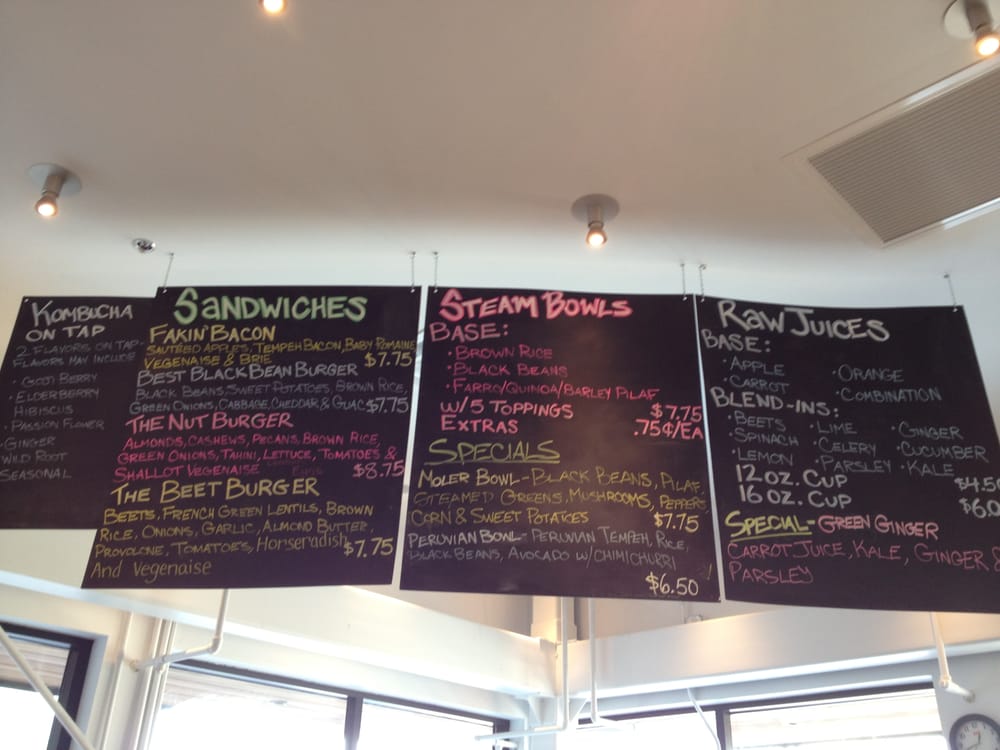 KOMBUCHA
ON TAP
2 FLAVORS ON TAP-
FLAVORS MAY INCLUDE
• GOJI BERRY
• ELDERBERRY
HIBISCUS
• PASSION FLOWER
• GINGER
WILD ROOT
SEASONAL
SANDWICHES
FAKIN' BACON
SAUTÉED APPLES, TEMPEH BACON, BABY ROMAINE,
VEGENAISE & BRIE $7.75
BEST BLACK BEAN BURGER
BLACK BEANS, SWEET POTATOES, BROWN RICE,
GREEN ONIONS, CABBAGE, CHEDDAR & GUAC $7.75
THE NUT BURGER
ALMONDS, CASHEWS, PECANS, BROWN RICE,
GREEN ONIONS, TAHINI, LETTUCE, TOMATOES &
SHALLOT VEGENAISE $8.75
THE BEET BURGER
BEETS, FRENCH GREEN LENTILS, BROWN
RICE, ONIONS, GARLIC, ALMOND BUTTER,
PROVOLONE, TOMATOES, Horseradish $7.75
And Vegenaise
STEAM BOWLS
BASE:
• BROWN RICE
• BLACK BEANS
• FARRO/QUINOA/BARLEY PILAF
W/5 TOPPINGS $7.75
EXTRAS .75¢/EA
SPECIALS
MOLER BOWL - BLACK BEANS, PILAF,
STEAMED GREENS, MUSHROOMS, PEPPERS,
CORN & SWEET POTATOES $7.75
PERUVIAN BOWL - PERUVIAN TEMPEH, RICE,
BLACK BEANS, AVOCADO W/CHIMICHURRI
$6.50
RAW JUICES
BASE:
• APPLE • ORANGE
• CARROT • COMBINATION
BLEND-INS:
• BEETS • LIME • GINGER
• SPINACH • CELERY • CUCUMBER
• LEMON • PARSLEY • KALE
12 OZ. CUP $4.50
16 OZ. CUP $6.0
SPECIAL - GREEN GINGER
CARROT JUICE, KALE, GINGER &
PARSLEY